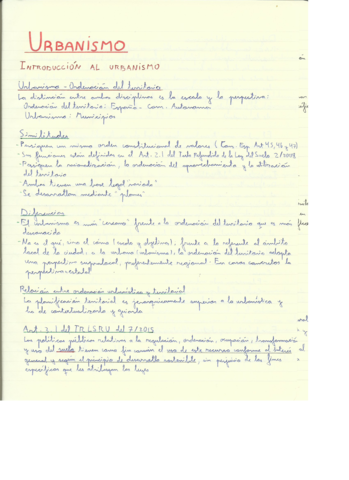 URBANISMO
INTRODUCCIÓN AL URBANISMO
Urbanismo - Ordenación del territorio
La distinción entre ambas disciplinas es la escala y la perspectiva:
Ordenación del territorio: España - Com. Autónoma
Urbanismo: Municipios
Similitudes
- Persiguen un mismo orden constitucional de valores ( Art 45, 46 y 47)
- Sus funciones están definidas en el Art. 2.1 del Texto Refundido de la Ley del Suelo 7/2015
- Persiguen la racionalización, la ordenación del aprovechamiento y la utilización
del territorio
- Ambas tienen una base legal
- Se desarrollan mediante "planes"
Diferencias
- El urbanismo es más "cercano" frente a la ordenación del territorio que es más
desconocido
- No es el qué, sino el cómo (escala y objetivos), frente a lo referente al ámbito
local de la ciudad, a lo urbano (urbanismo), la ordenación del territorio adopta
una perspectiva supralocal, preferentemente regional. En casos la
perspectiva estatal
Relación entre ordenación urbanística y territorial
La planificación territorial es jerárquicamente superior a la urbanística y
ha de contextualizarla y guiarla
Art. 2.1 del TRLSRU del 7/2015
Las políticas públicas relativas a la regulación, ordenación, ocupación, transformación
y uso del suelo tienen como fin común el uso de este recurso conforme al interés
general y según el principio de desarrollo sostenible, sin perjuicio de los fines
específicos que les atribuyan las leyes